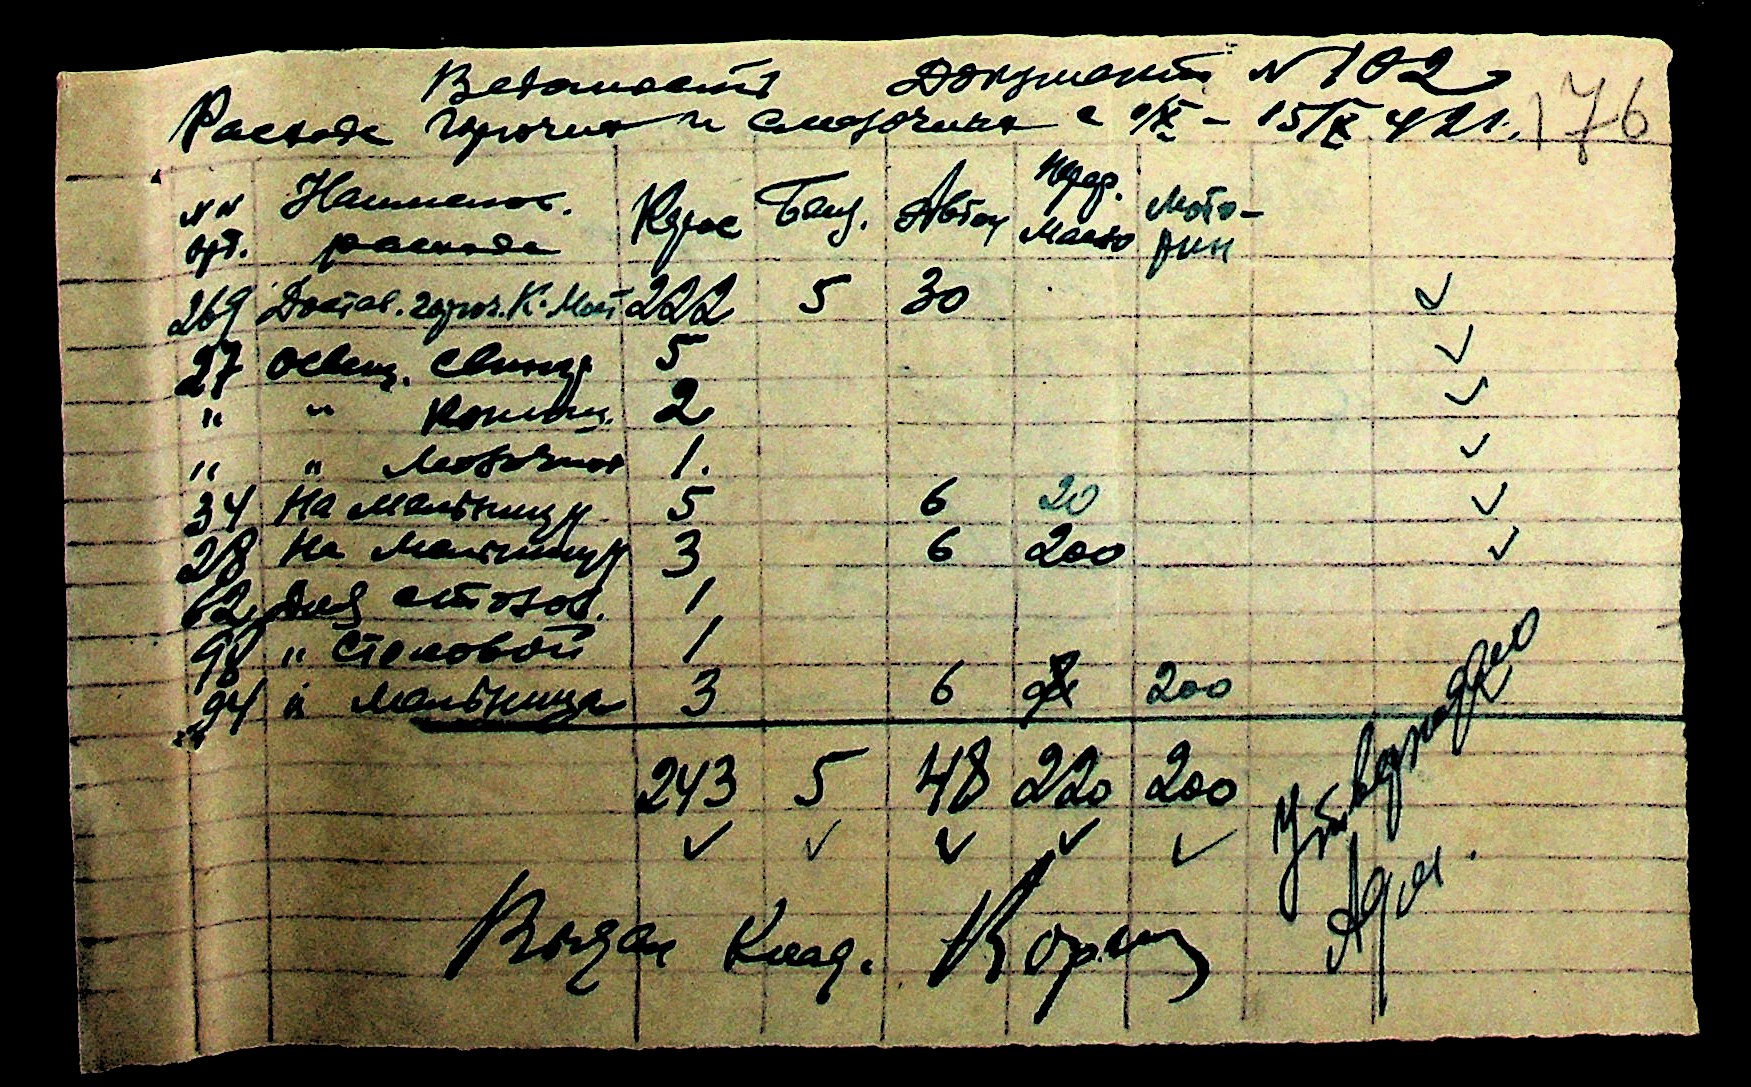 Ведомость Документ № 102
176
Расхода горючих и смазочных с 1/IX - 15/IX 42 г.
№№ арт. Наименов. расхода Керос Бенз. Автол Нигр. Масло
269 Достав. горюч. К. 222 5 30
27 Освещ. свинар 5
" " Конюш. 2
" " 1.
34 На мельницу 5 6 20
28 На мельницу 3 6 200
62 Для 1
98 " Столовой 1
94 " Мельница 3 6 200
243 5 48 220 200
Утверждаю
Выдал Клад.